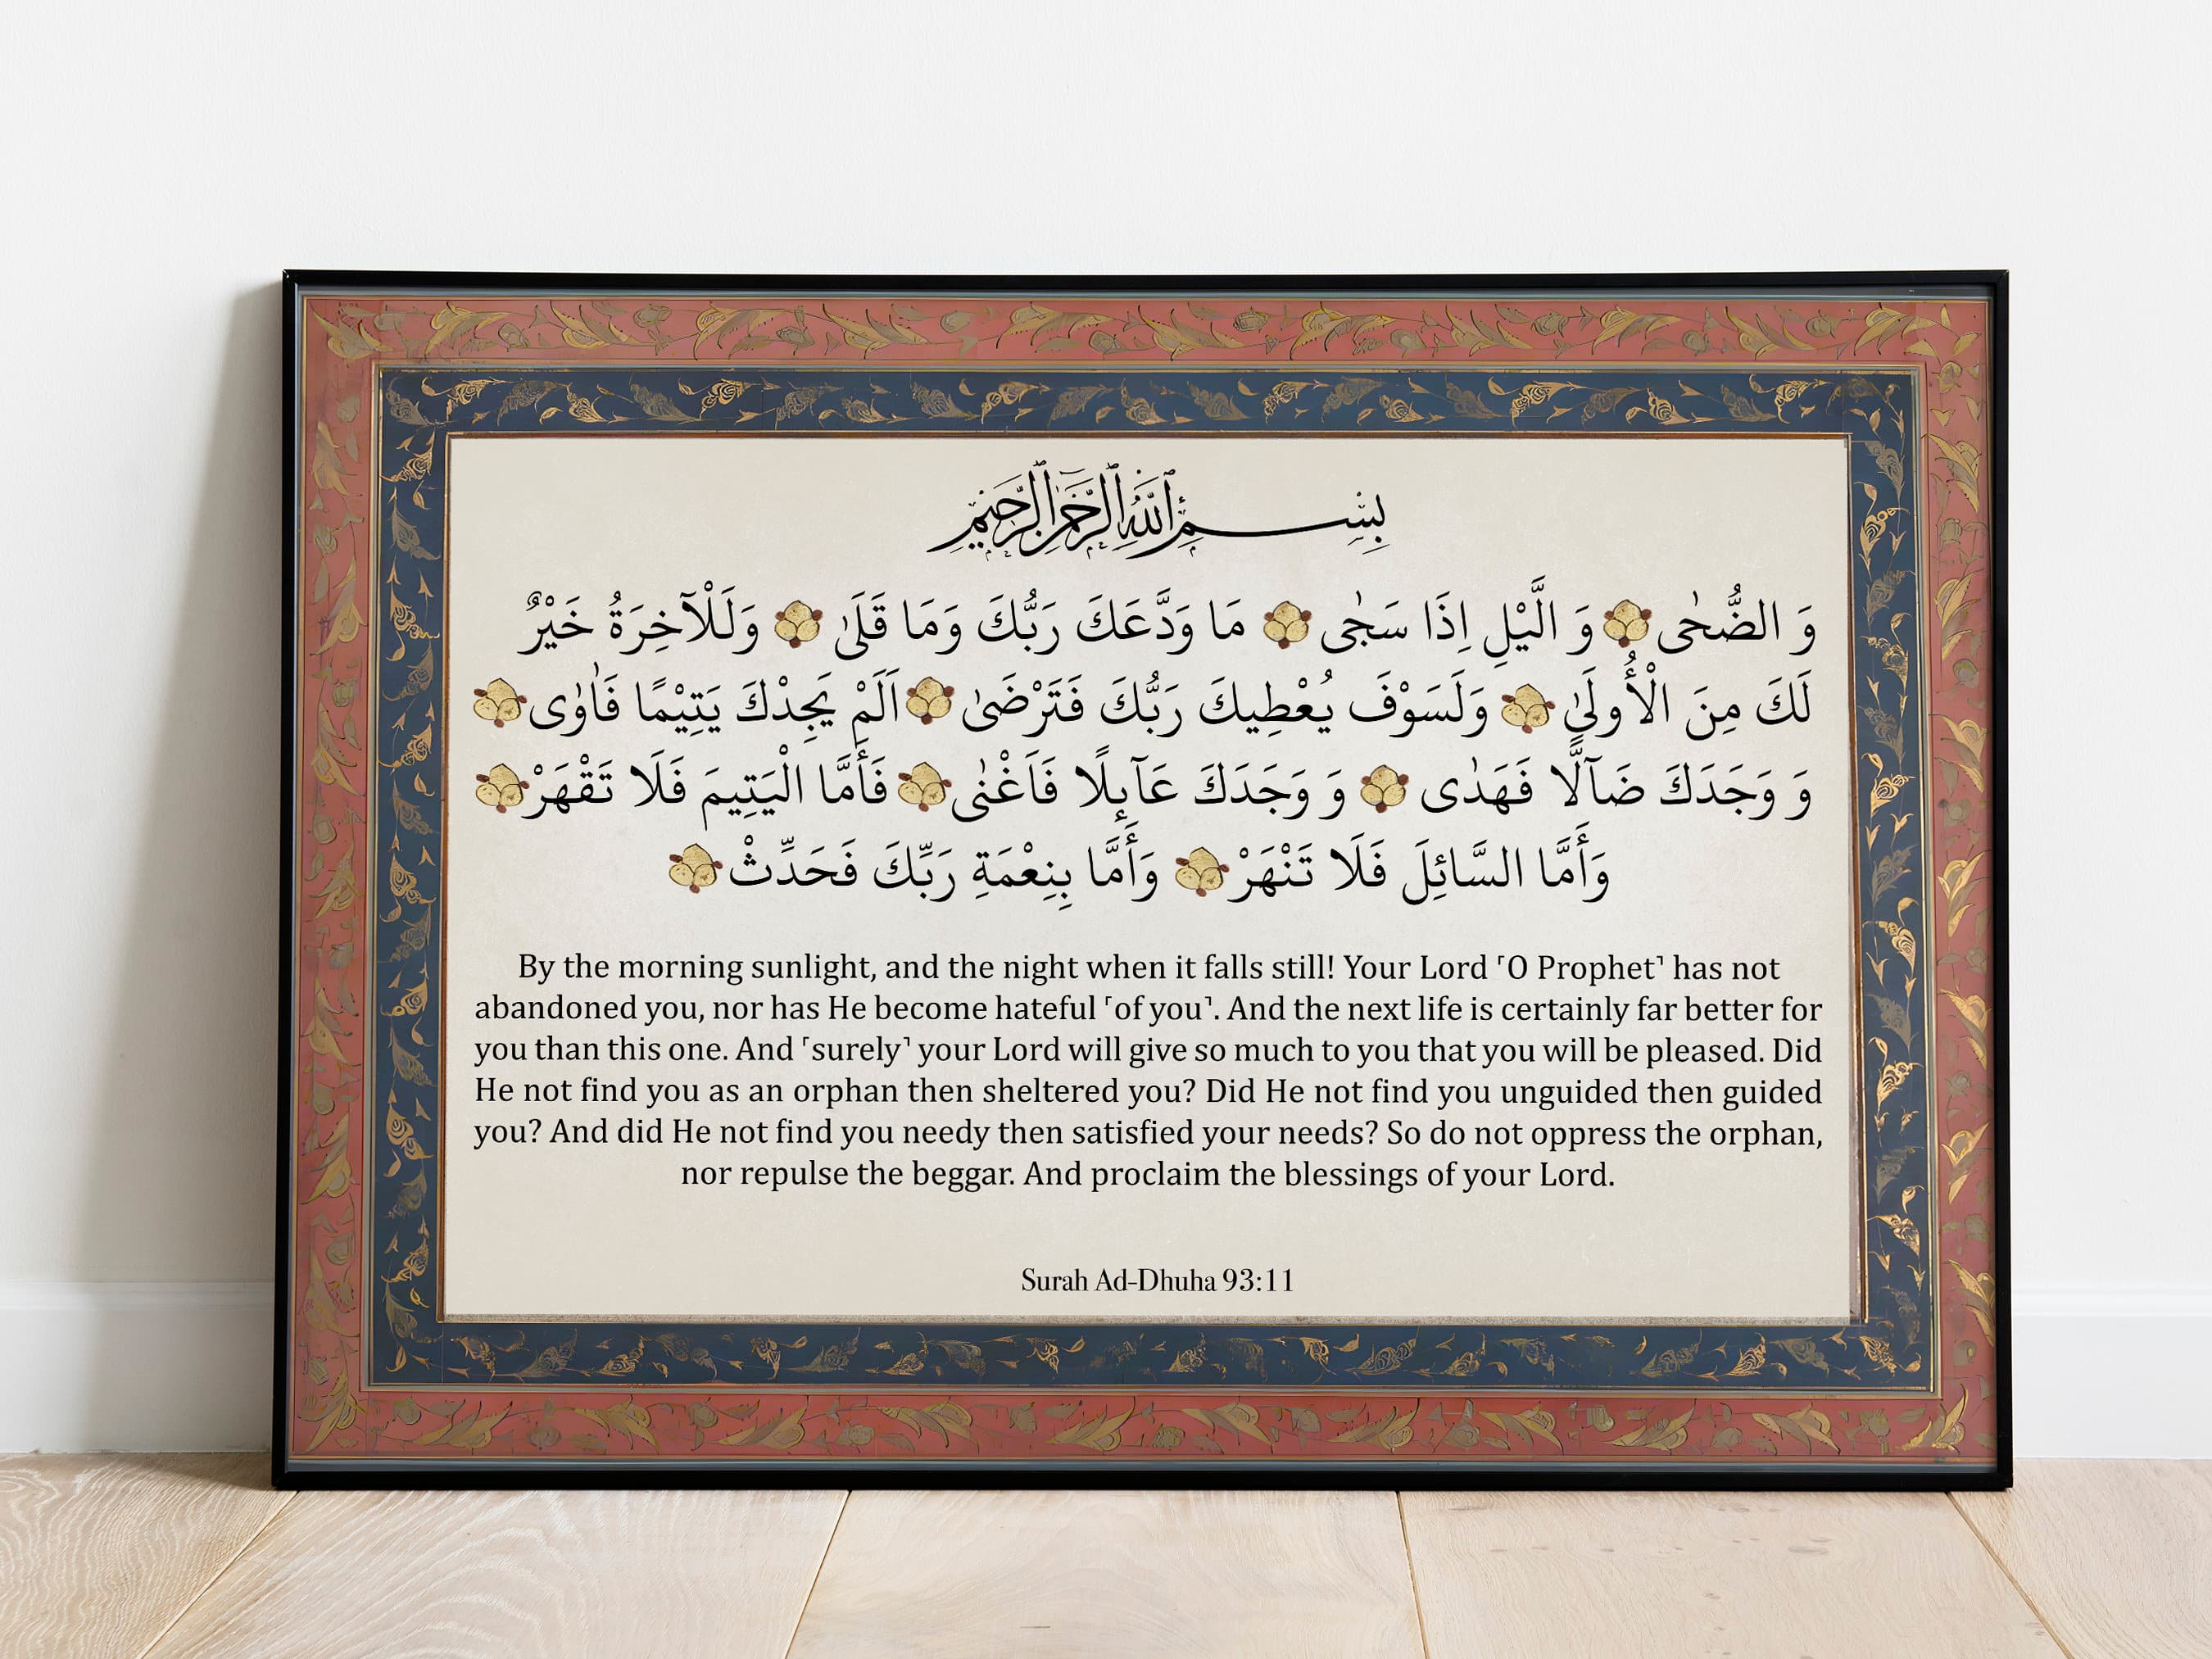 بِسْمِ ٱللَّهِ ٱلرَّحْمَٰنِ ٱلرَّحِيمِ
وَ الضُّحٰى وَ الَّيْلِ اِذَا سَجٰى مَا وَدَّعَكَ رَبُّكَ وَمَا قَلَىٰ وَلَلْآخِرَةُ خَيْرٌ
لَكَ مِنَ الْأُولَىٰ وَلَسَوْفَ يُعْطِيكَ رَبُّكَ فَتَرْضَىٰ اَلَمْ يَجِدْكَ يَتِيْمًا فَاٰوٰى
وَ وَجَدَكَ ضَآلًّا فَهَدٰى وَ وَجَدَكَ عَآىِٕلًا فَاَغْنٰى فَأَمَّا الْيَتِيمَ فَلَا تَقْهَرْ
وَأَمَّا السَّائِلَ فَلَا تَنْهَرْ وَأَمَّا بِنِعْمَةِ رَبِّكَ فَحَدِّثْ
By the morning sunlight, and the night when it falls still! Your Lord ˹O Prophet˺ has not
abandoned you, nor has He become hateful ˹of you˺. And the next life is certainly far better for
you than this one. And ˹surely˺ your Lord will give so much to you that you will be pleased. Did
He not find you as an orphan then sheltered you? Did He not find you unguided then guided
you? And did He not find you needy then satisfied your needs? So do not oppress the orphan,
nor repulse the beggar. And proclaim the blessings of your Lord.
Surah Ad-Dhuha 93:11